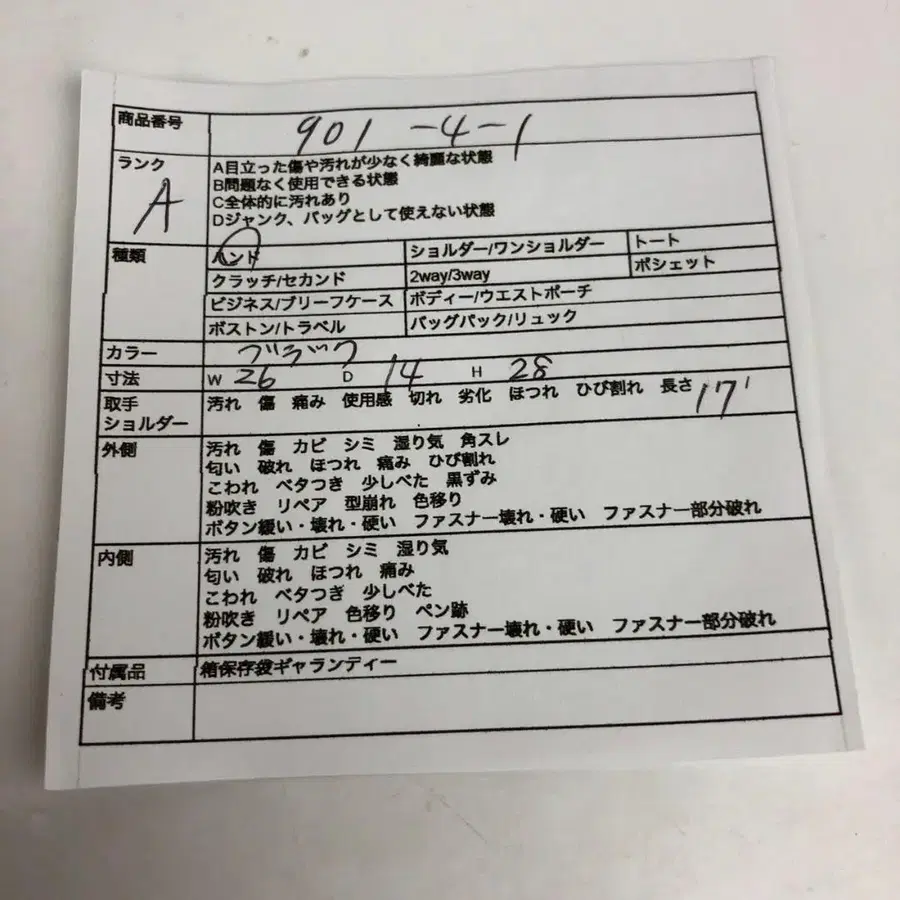 商品番号 901-4-1
ランク A
A目立った傷や汚れが少なく綺麗な状態
B問題なく使用できる状態
C全体的に汚れあり
Dジャンク、バッグとして使えない状態
種類 ハンド ショルダー/ワンショルダー トート
クラッチ/セカンド 2way/3way ポシェット
ビジネス/ブリーフケース ボディー/ウエストポーチ
ボストン/トラベル バッグパック/リュック
カラー ブラック
寸法 W 26 D 14 H 28
取手 汚れ 傷 痛み 使用感 切れ 劣化 ほつれ ひび割れ 長さ 17
ショルダー
外側 汚れ 傷 カビ シミ 湿り気 角スレ
匂い 破れ ほつれ 痛み ひび割れ
こわれ ベタつき 少しべた 黒ずみ
粉吹き リペア 型崩れ 色移り
ボタン緩い・壊れ・硬い ファスナー壊れ・硬い ファスナー部分破れ
内側 汚れ 傷 カビ シミ 湿り気
匂い 破れ ほつれ 痛み
こわれ ベタつき 少しべた
粉吹き リペア 色移り ペン跡
ボタン緩い・壊れ・硬い ファスナー壊れ・硬い ファスナー部分破れ
付属品 箱保存袋ギャランティー
備考